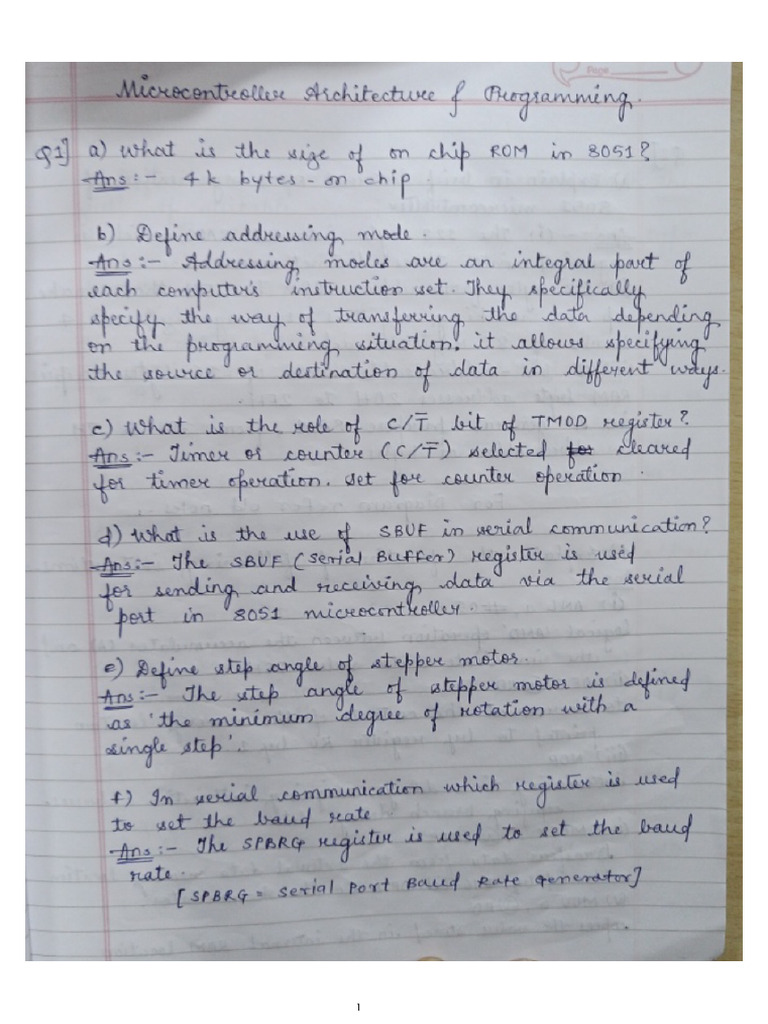 Page
Microcontroller Architecture & Programming.
Q1] a) What is the size of on chip ROM in 8051?
Ans :- 4k bytes - on chip.
b) Define addressing mode.
Ans :- Addressing modes are an integral part of
each computer's instruction set. They specifically
specify the way of transferring the data depending
on the programming situation. it allows specifying
the source or destination of data in different ways.
c) What is the role of C/T̅ bit of TMOD register?
Ans :- Timer or counter (C/T̅) selected for cleared
for timer operation. set for counter operation.
d) What is the use of SBUF in serial communication?
Ans :- The SBUF (Serial Buffer) register is used
for sending and receiving data via the serial
port in 8051 microcontroller.
e) Define step angle of stepper motor.
Ans :- The step angle of stepper motor is defined
as 'the minimum degree of rotation with a
single step'.
f) In serial communication which register is used
to set the baud rate.
Ans :- The SPBRG register is used to set the baud
rate.
[SPBRG = Serial Port Baud Rate Generator]
1